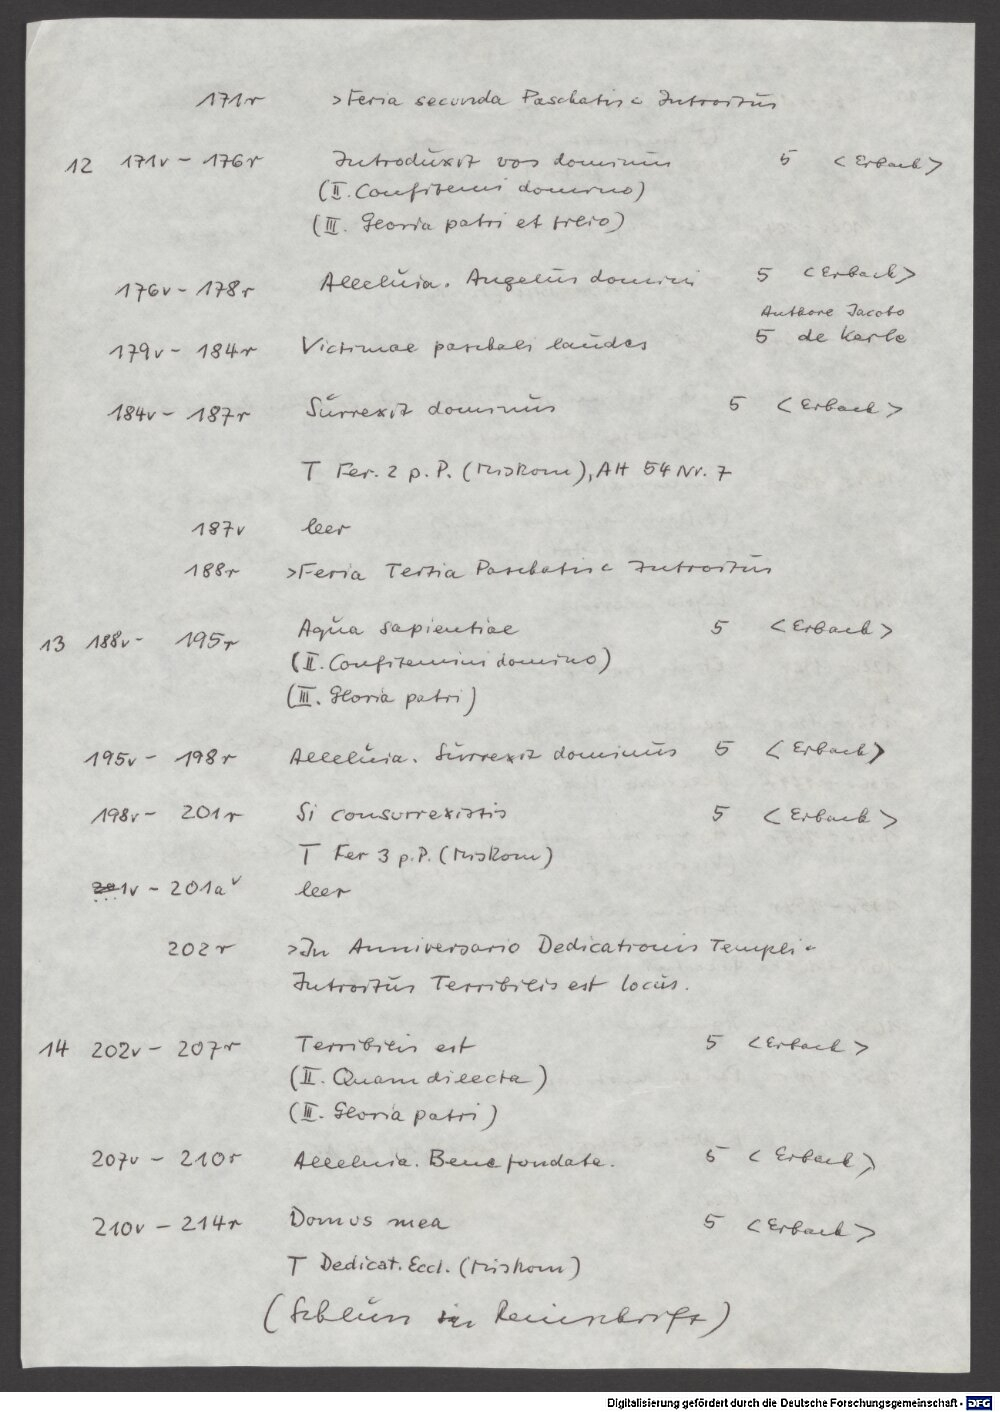 171r >Feria secunda Paschatis< Introitus
12 171v - 176r Introduxit vos dominus 5 <Erbach>
(II. Confitemini domino)
(III. Gloria patri et filio)
176v - 178r Alleluia. Angelus domini 5 <Erbach>
Authore Jacobo
179v - 184r Victimae paschali laudes 5 de Kerle
184v - 187r Surrexit dominus 5 <Erbach>
T Fer. 2 p. P. (MisRom), AH 54 Nr. 7
187v leer
188r >Feria Tertia Paschatis< Introitus
13 188v - 195r Aqua sapientiae 5 <Erbach>
(II. Confitemini domino)
(III. Gloria patri)
195v - 198r Alleluia. Surrexit dominus 5 <Erbach>
198v - 201r Si consurrexistis 5 <Erbach>
T Fer 3 p. P. (MisRom)
201v - 201a v leer
202r >In Anniversario Dedicationis Templi<
Introitus Terribilis est locus.
14 202v - 207r Terribilis est 5 <Erbach>
(II. Quam dilecta)
(III. Gloria patri)
207v - 210r Alleluia. Bene fondata. 5 <Erbach>
210v - 214r Domus mea 5 <Erbach>
T Dedicat. Eccl. (MisRom)
(Schluss in Reinschrift)
Digitalisierung gefördert durch die Deutsche Forschungsgemeinschaft - DFG